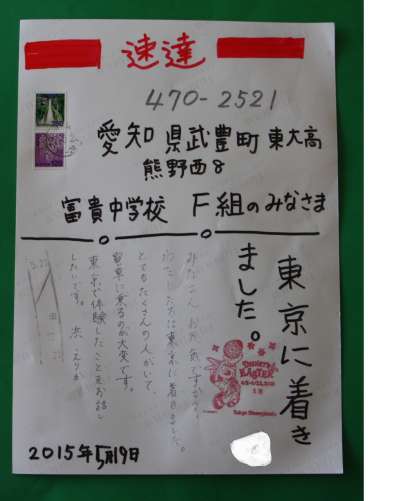 速達
470-2521
愛知県武豊町東大高
熊野西8
富貴中学校 F組のみなさま
東京に着き
ました。
みなさん お元気ですか?
わたしたちは東京に着きました。
とてもたくさんの人がいて、
電車に乗るのが大変です。
東京で体験したことをお話し
したいです。
DISNEY'S
EASTER
Tokyo Disneyland
2015年5月19日